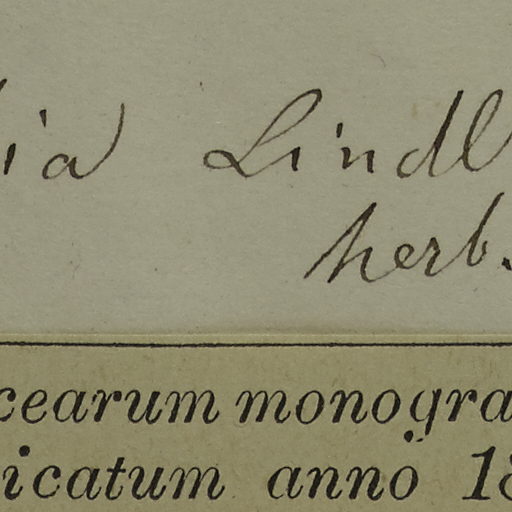 ia Lindl
herb.
cearum monogra
icatum anno 18